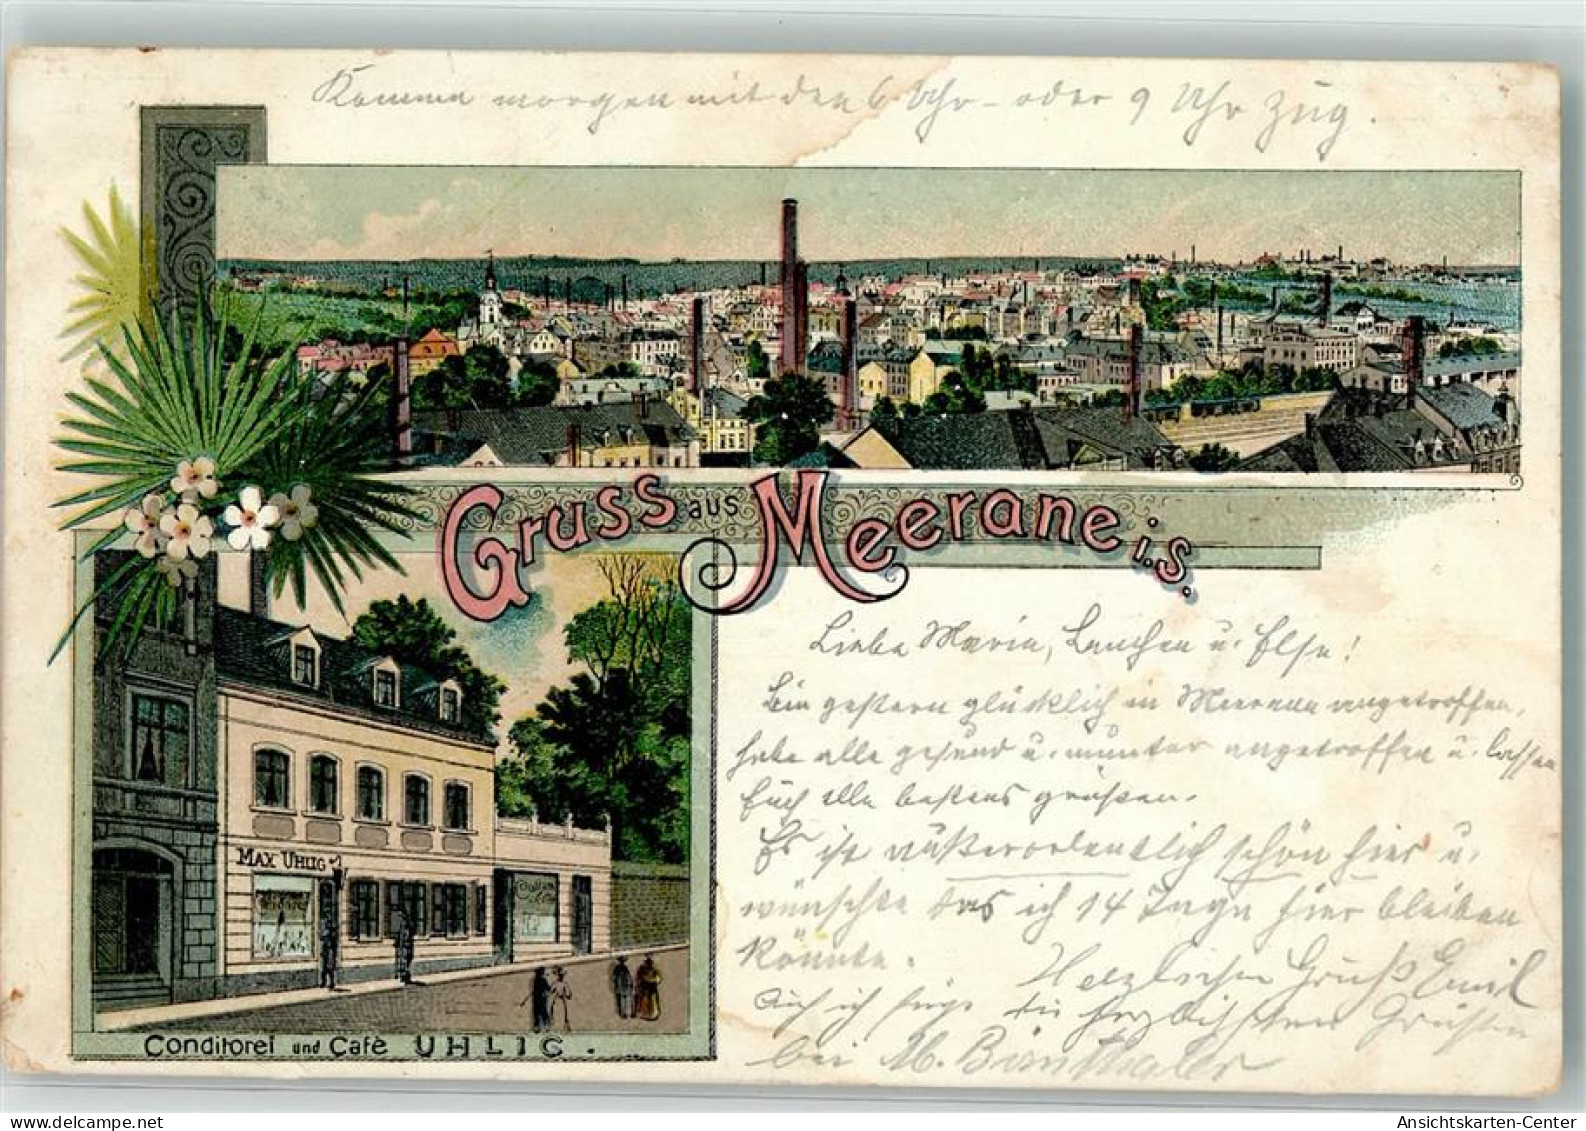 Komme morgen mit den 6 Uhr- oder 9 Uhr Zug.
Gruss aus Meerane i.S.
Liebe Marie, Lenchen u. Else!
Bin gestern glücklich in Meerane angetroffen,
habe alle gesund u. munter angetroffen u. lassen
Euch alle bestens grüßen.
Es ist außerordentlich schön hier u.
wünschte das ich 14 Tage hier bleiben
könnte. Herzlichen Gruß Emil
Auch ich füge die herzlichsten Grüße
bei M.
MAX UHLIG
Conditorei und Café UHLIG.
www.delcampe.net
Ansichtskarten-Center